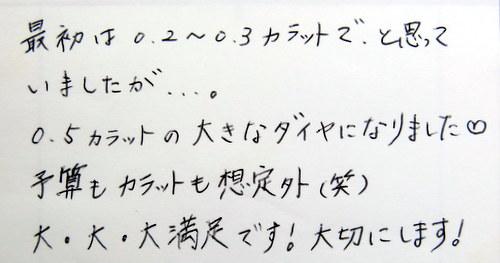 最初は 0.2～0.3カラットで.と思って
いましたが....。
0.5カラットの大きなダイヤになりました♡
予算もカラットも想定外(笑)
大・大・大満足です!大切にします!